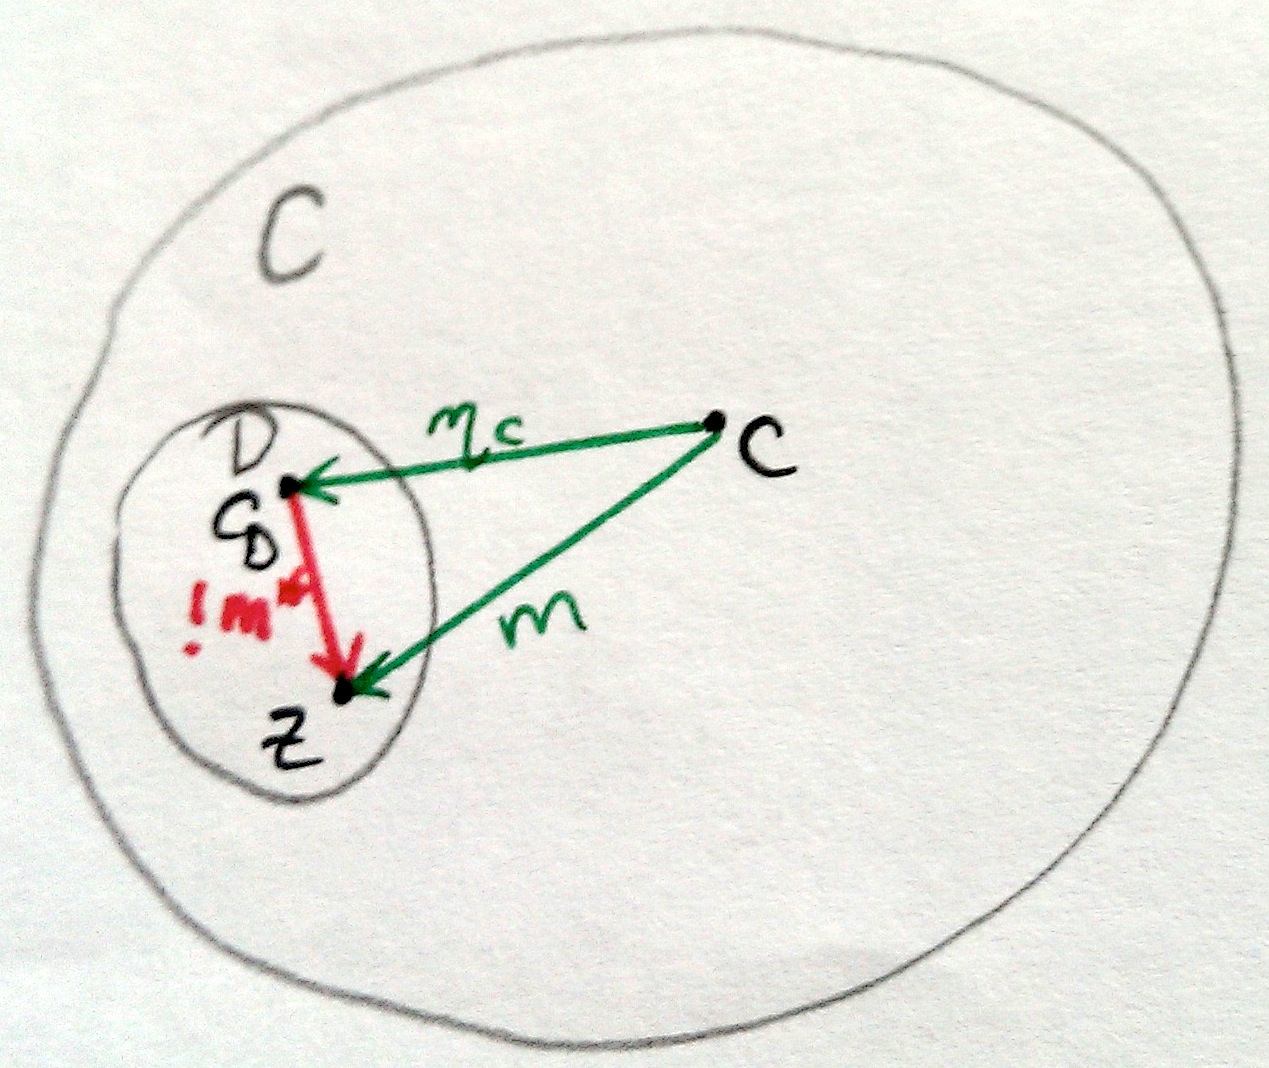 C
D
ηc
C
C_D
!m*
m
Z